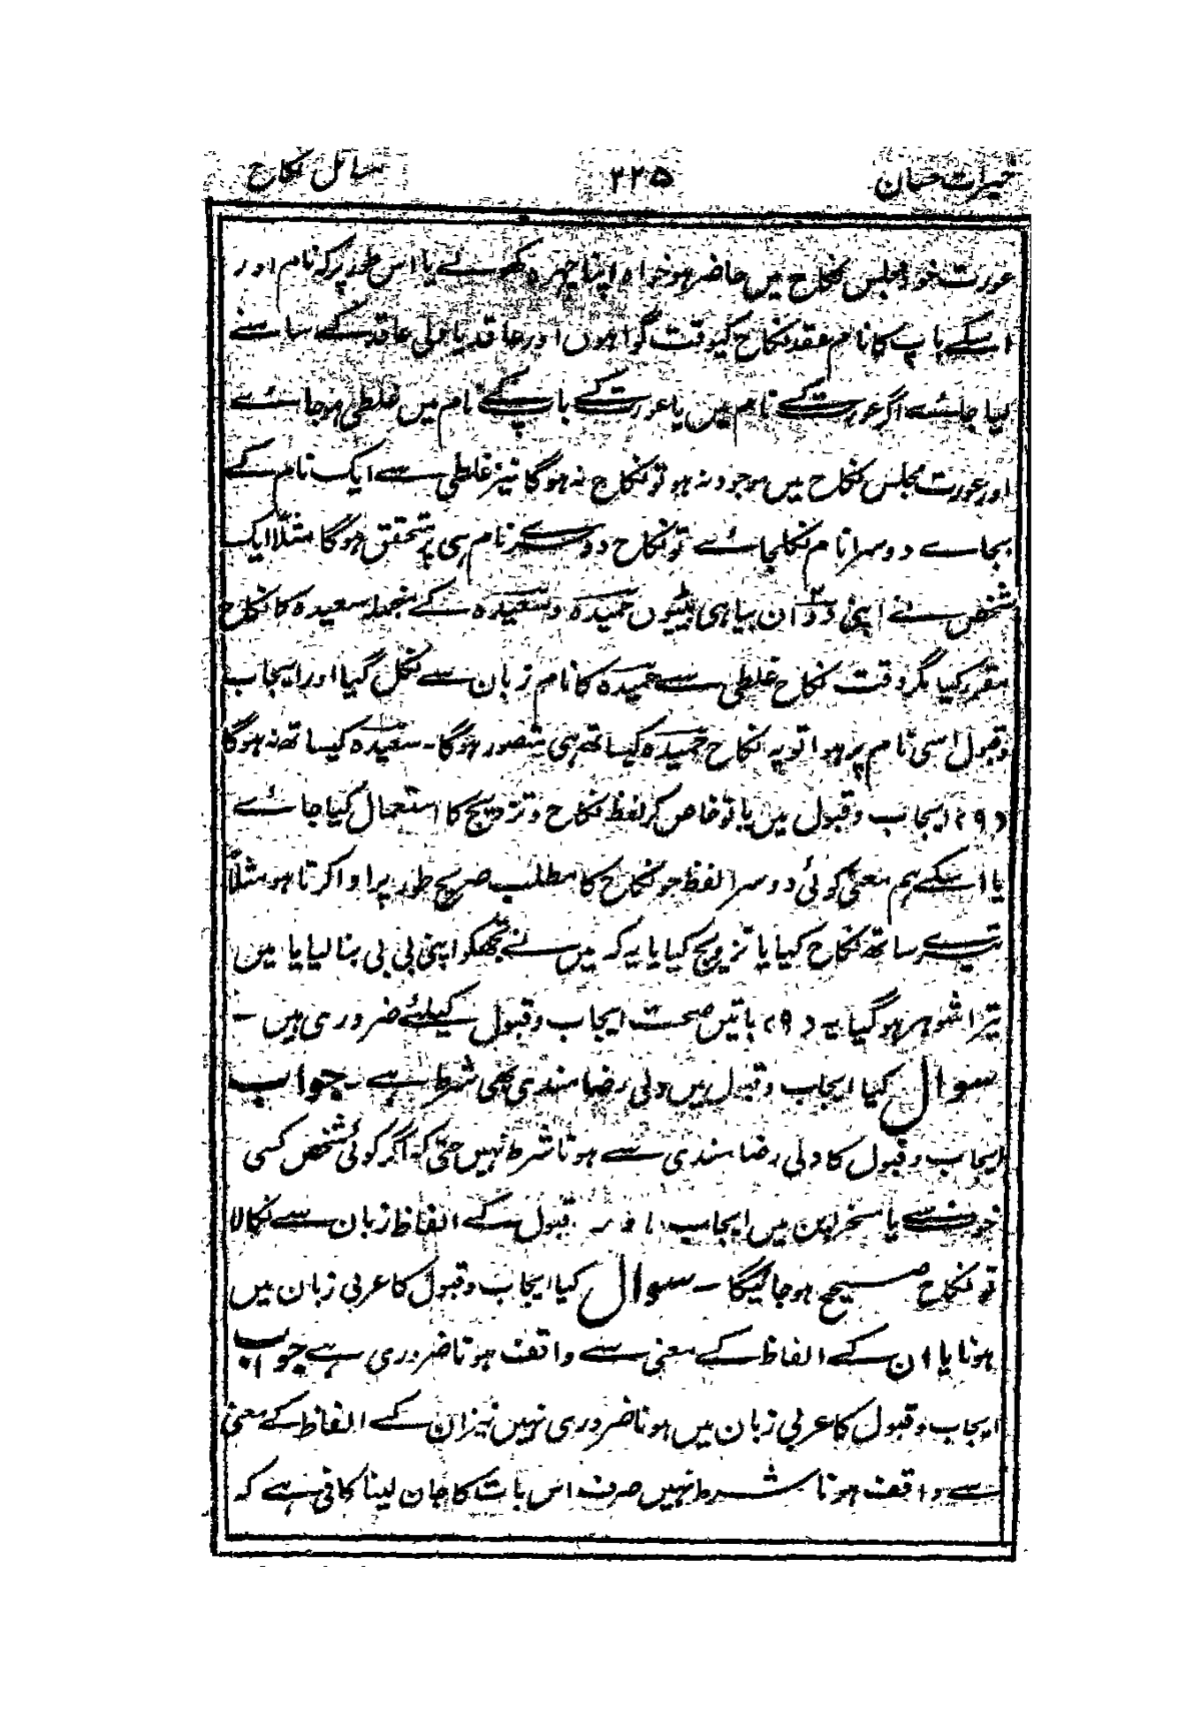 خیرات حسان ۲۲۵ مسائل نکاح
عورت خود مجلس نکاح میں حاضر ہو خواہ اپنا چہرہ کھولے یا اس طور پر کہ نام اور
اسکے باپ کا نام عقد نکاح کیوقت گواہوں اور عاقد یا ولی عاقد کے سامنے
لیا جائے اگر عورت کے نام میں یا عورت کے باپ کے نام میں غلطی ہوجائے
اور عورت مجلس نکاح میں موجود نہ ہو تو نکاح نہ ہوگا نیز غلطی سے ایک نام کے
بجاے دوسرا نام نکلجائے تو نکاح دوسرے نام ہی پر متحقق ہوگا مثلاً ایک
شخص نے اپنی دو ان بیاہی بیٹیوں حمیدہ وسعیدہ کے منجملہ سعیدہ کا نکاح
مقرر کیا مگر وقت نکاح غلطی سے حمیدہ کا نام زبان سے نکل گیا اور ایجاب
وقبول اسی نام پر ہوا تو یہ نکاح حمیدہ کیساتھ ہی متصور ہوگا۔ سعیدہ کیساتھ نہ ہوگا
(۹) ایجاب وقبول میں یا تو خاص کر لفظ نکاح و تزویج کا استعمال کیا جائے
یا اسکے ہم معنی کوئی دوسرا لفظ جو نکاح کا مطلب صریح طور پر ادا کرتا ہو مثلاً
تیرے ساتھ نکاح کیا یا تزویج کیا یا یہ کہ میں نے تجھکو اپنی بی بی بنا لیا یا میں
تیرا شوہر ہوگیا یہ (۹) باتیں صحت ایجاب وقبول کیلئے ضروری ہیں ۔
سوال کیا ایجاب وقبول میں دلی رضامندی بھی شرط ہے ۔ جواب
ایجاب وقبول کا دلی رضامندی سے ہونا شرط نہیں حتی کہ اگر کوئی شخص کسی
خوف سے یا مسخراپن میں ایجاب اور قبول کے الفاظ زبان سے نکالا
تو نکاح صحیح ہوجائیگا ۔ سوال کیا ایجاب وقبول کا عربی زبان میں
ہونا یا ان کے الفاظ کے معنی سے واقف ہونا ضروری ہے جواب
ایجاب وقبول کا عربی زبان میں ہونا ضروری نہیں نیز ان کے الفاظ کے معنی
سے واقف ہونا شرط نہیں صرف اس بات کا جان لینا کافی ہے کہ